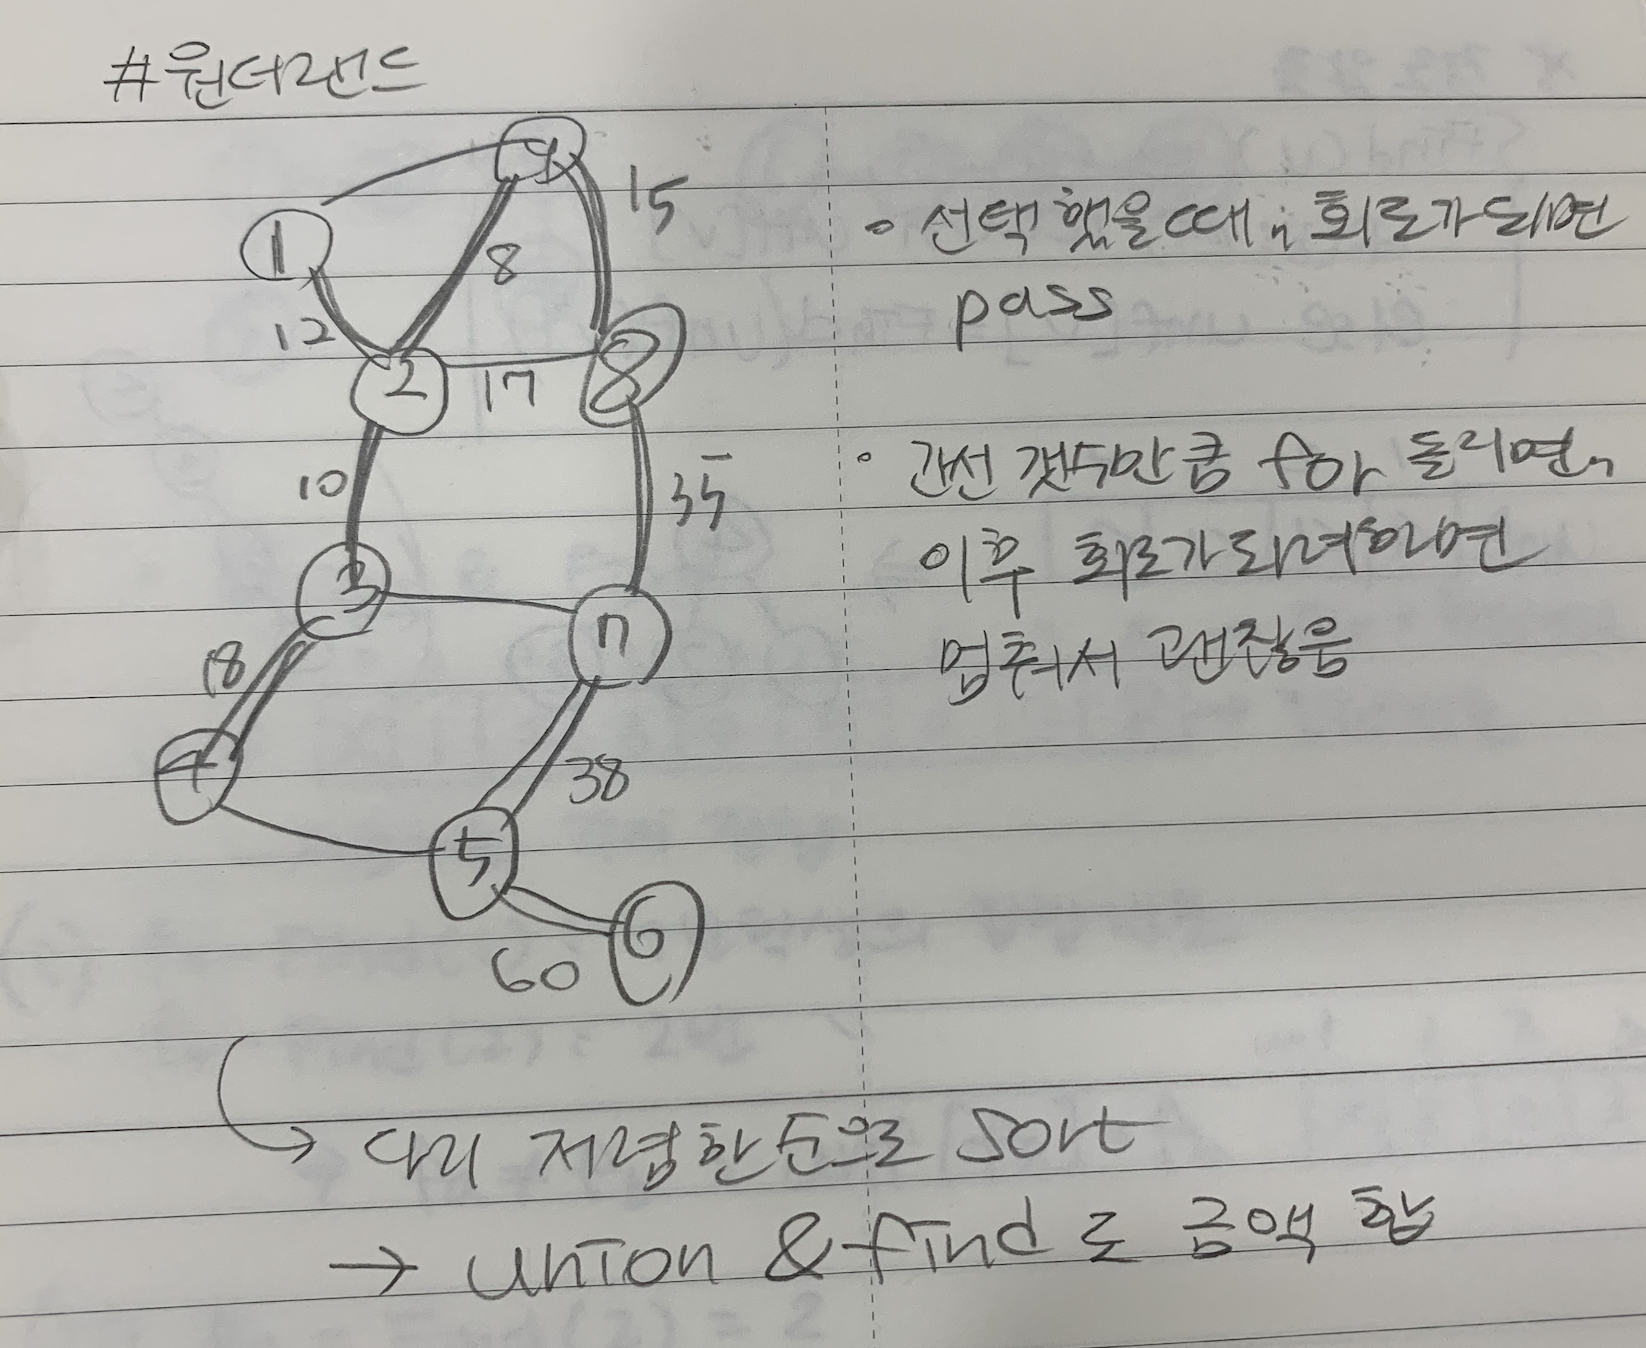 #원더랜드
9
15
1
8
12
2
17
8
10
35
3
7
18
4
38
5
6
60
• 선택했을때, 회로가되면
pass
• 간선 갯수만큼 for 돌리면,
이후 회로가 되려하면
멈춰서 괜찮음
→ 다리 저렴한 순으로 Sort
→ union & find 로 금액 합